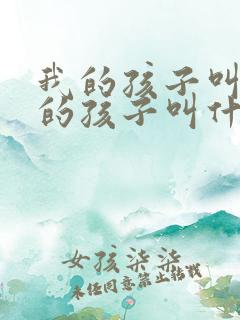 我的孩子叫
的孩子叫什
女孩柒柒
未经同意禁止转载